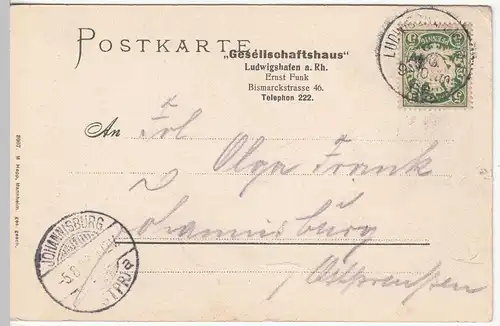 POSTKARTE
„Gesellschaftshaus"
Ludwigshafen a. Rh.
Ernst Funk
Bismarckstrasse 46.
Telephon 222.
An Frl
Olga Frank
Johannisburg
Ostpreußen
JOHANNISBURG